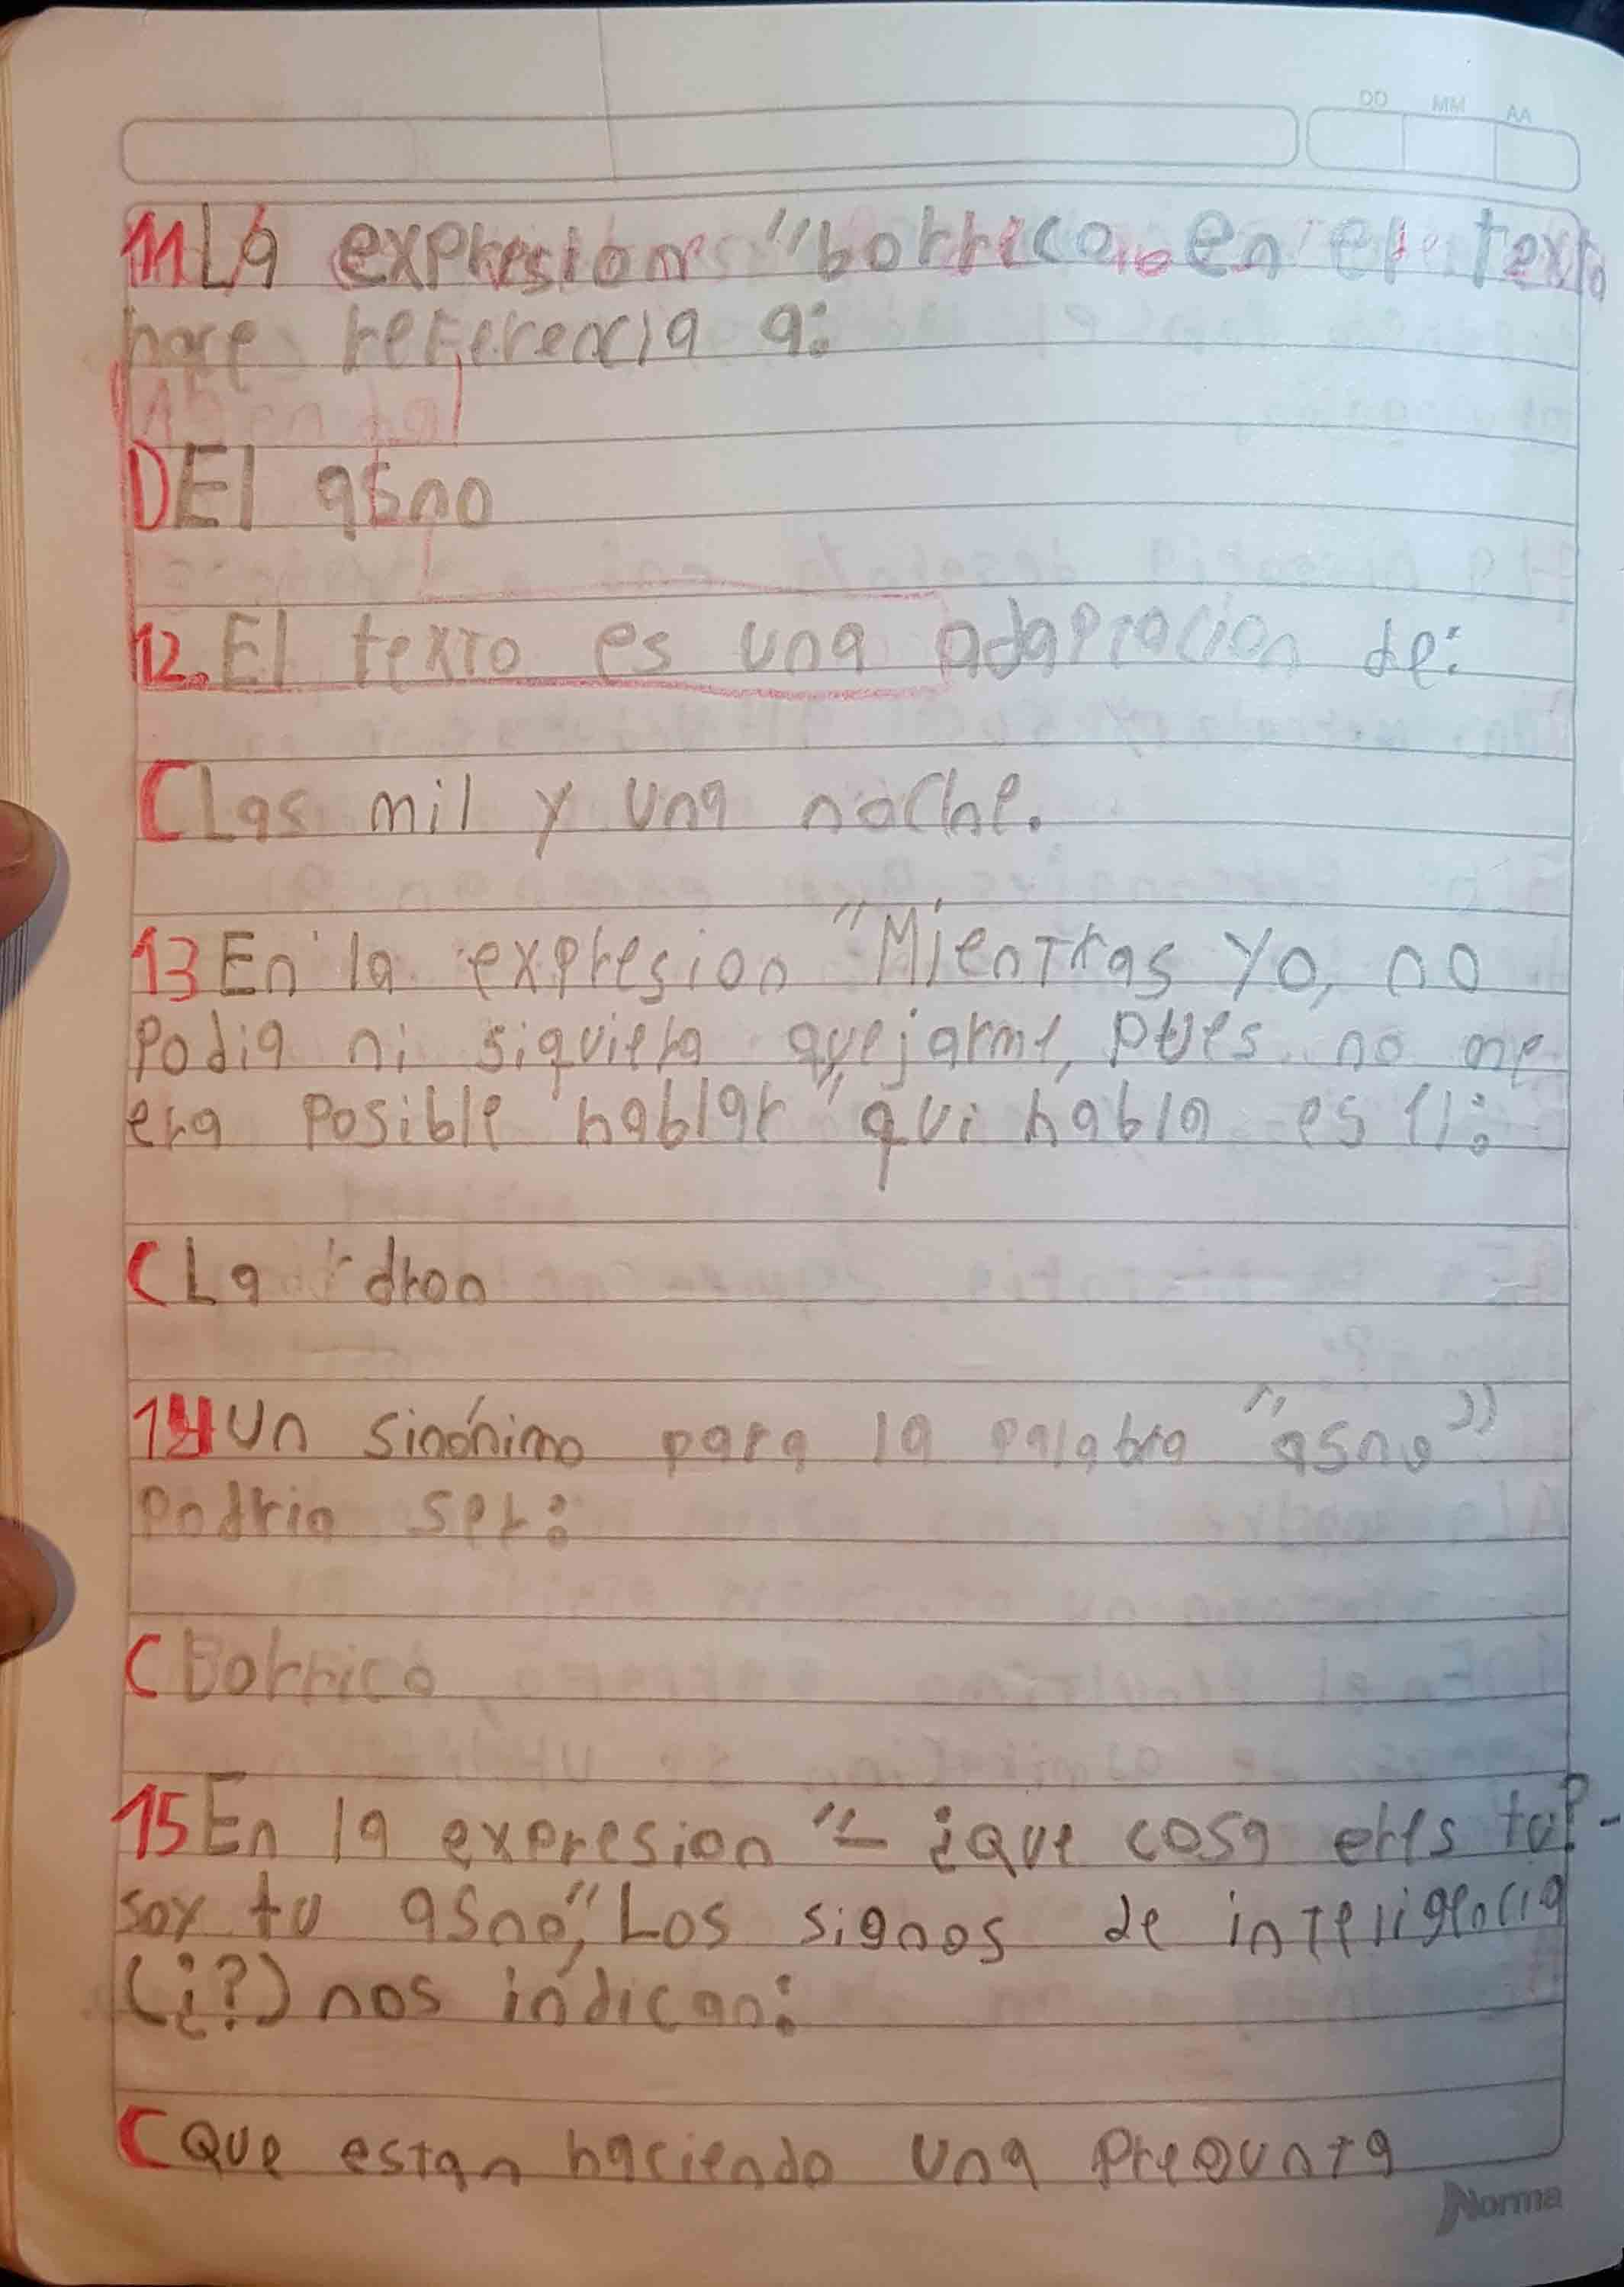 DD MM AA
11 La expresion "borrico" en el texto
hace referencia a:
D El asno
12. El texto es una adaptacion de:
C Las mil y una noche.
13 En la expresion "Mientras yo, no
podia ni siquiera quejarme, pues no me
era posible hablar" qui habla es el:
C La dron
14 Un sinónimo para la palabra "asno"
podria ser:
C Borrico
15 En la expresion "- ¿que cosa eres tu? -
soy tu asno", Los signos de inteligencia
(¿?) nos indican:
C que estan haciendo una pregunta
Norma